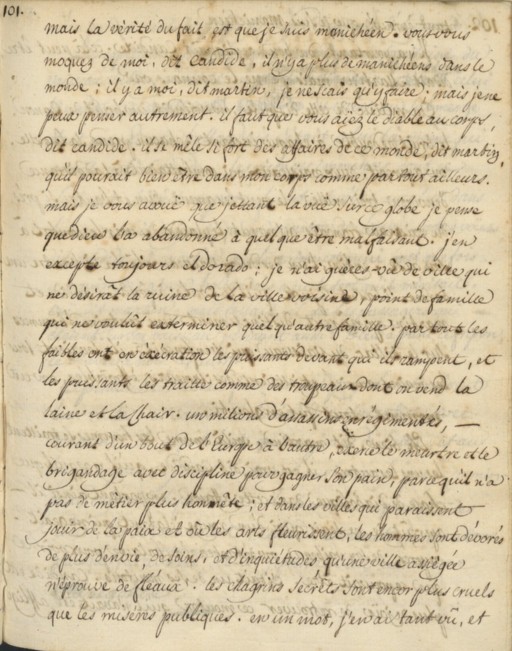 101.
mais la vérité du fait est que je suis manichéen. vous vous
moquez de moi, dit candide, il n'y a plus de manichéens dans le
monde ; il y a moi, dit martin, je ne scais qu'y faire ; mais je ne
peux penser autrement. il faut que vous aiez le diable au corps,
dit candide. il se mêle si fort des affaires de ce monde, dit martin,
qu'il pourait bien être dans mon corps comme partout ailleurs.
mais je vous avoüe que jettant la vüe sur ce globe je pense
que dieu l'a abandonné à quelque être malfaisant. j'en
excepte toujours eldorado ; je n'ai guères vû de ville qui
ne désirât la ruine de la ville voisine, point de famille
qui ne voulût exterminer quelqu'autre famille. par tout les
faibles ont en exécration les puissants devant qui ils rampent, et
les puissants les traitte comme des troupeaux dont on vend la
laine et la chair. un milions d'assassins enrégimentés, —
courant d'un bout de l'Europe à l'autre, exerce le meurtre et le
brigandage avec discipline pour gagner son pain, parce qu'il n'a
pas de métier plus honnête ; et dans les villes qui paraissent
jouir de la paix et où les arts fleurissent, les hommes sont dévorés
de plus d'envie, de soins, et d'inquiétudes qu'une ville assiégée
n'éprouve de fléaux. les chagrins secrèts sont encor plus cruels
que les misères publiques. en un mot, j'en ai tant vû, et